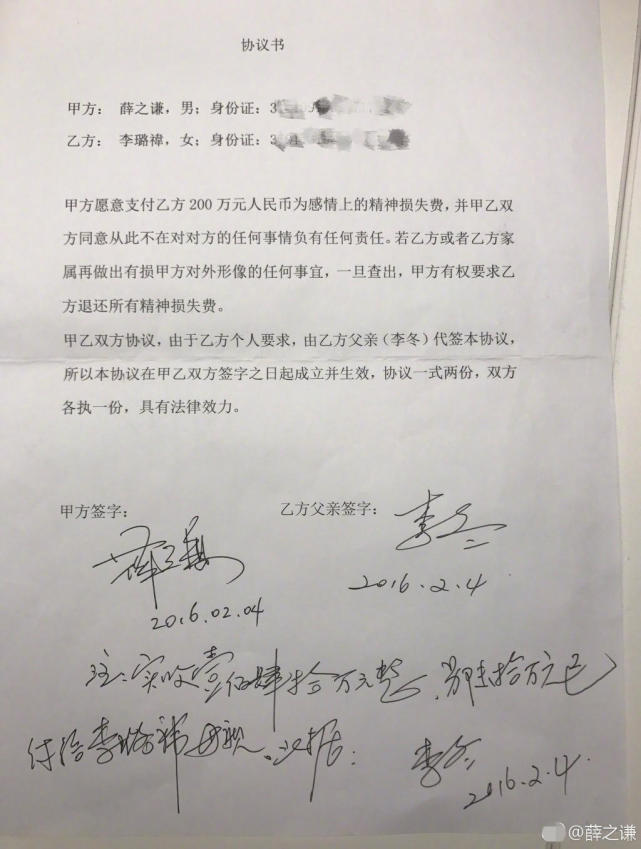 协议书
甲方： 薛之谦，男；身份证：3
乙方： 李璐禕，女；身份证：3
甲方愿意支付乙方 200 万元人民币为感情上的精神损失费，并甲乙双
方同意从此不在对对方的任何事情负有任何责任。若乙方或者乙方家
属再做出有损甲方对外形像的任何事宜，一旦查出，甲方有权要求乙
方退还所有精神损失费。
甲乙双方协议，由于乙方个人要求，由乙方父亲（李冬）代签本协议，
所以本协议在甲乙双方签字之日起成立并生效，协议一式两份，双方
各执一份，具有法律效力。
甲方签字： 乙方父亲签字： 李冬
薛之谦 2016.2.4
2016.02.04
注：实收壹佰肆拾万元整，拾万元已
付给李璐禕母亲。以据：李冬
2016.2.4.
@薛之谦